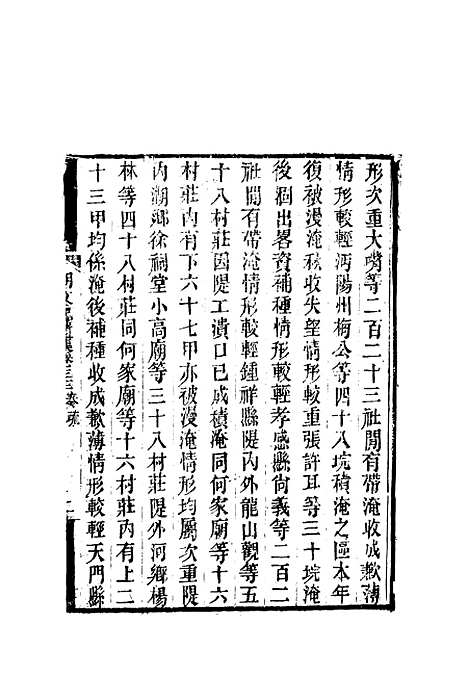 形次重大嘴等二百二十三社閒有帶淹收成歉薄
情形較輕沔陽州梅公等四十八垸積淹之區本年
復被漫淹秋收失望情形較重張許耳等三十垸淹
後涸出畧資補種情形較輕孝感縣尙義等二百二
社閒有帶淹情形較輕鍾祥縣隄內外龍山觀等五
十八村莊因隄工潰口已成積淹同何家廟等十六
村莊內有下六十七甲亦被漫淹情形均屬次重隄
內湖鄉徐祠堂小高廟等三十八村莊隄外河鄉楊
林等四十八村莊同何家廟等十六村莊內有上二
十三甲均係淹後補種收成歉薄情形較輕天門縣